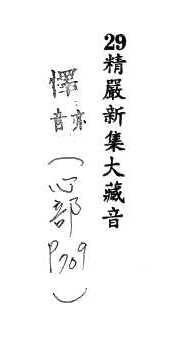 29精嚴新集大藏音
懌音亦(心部P709)